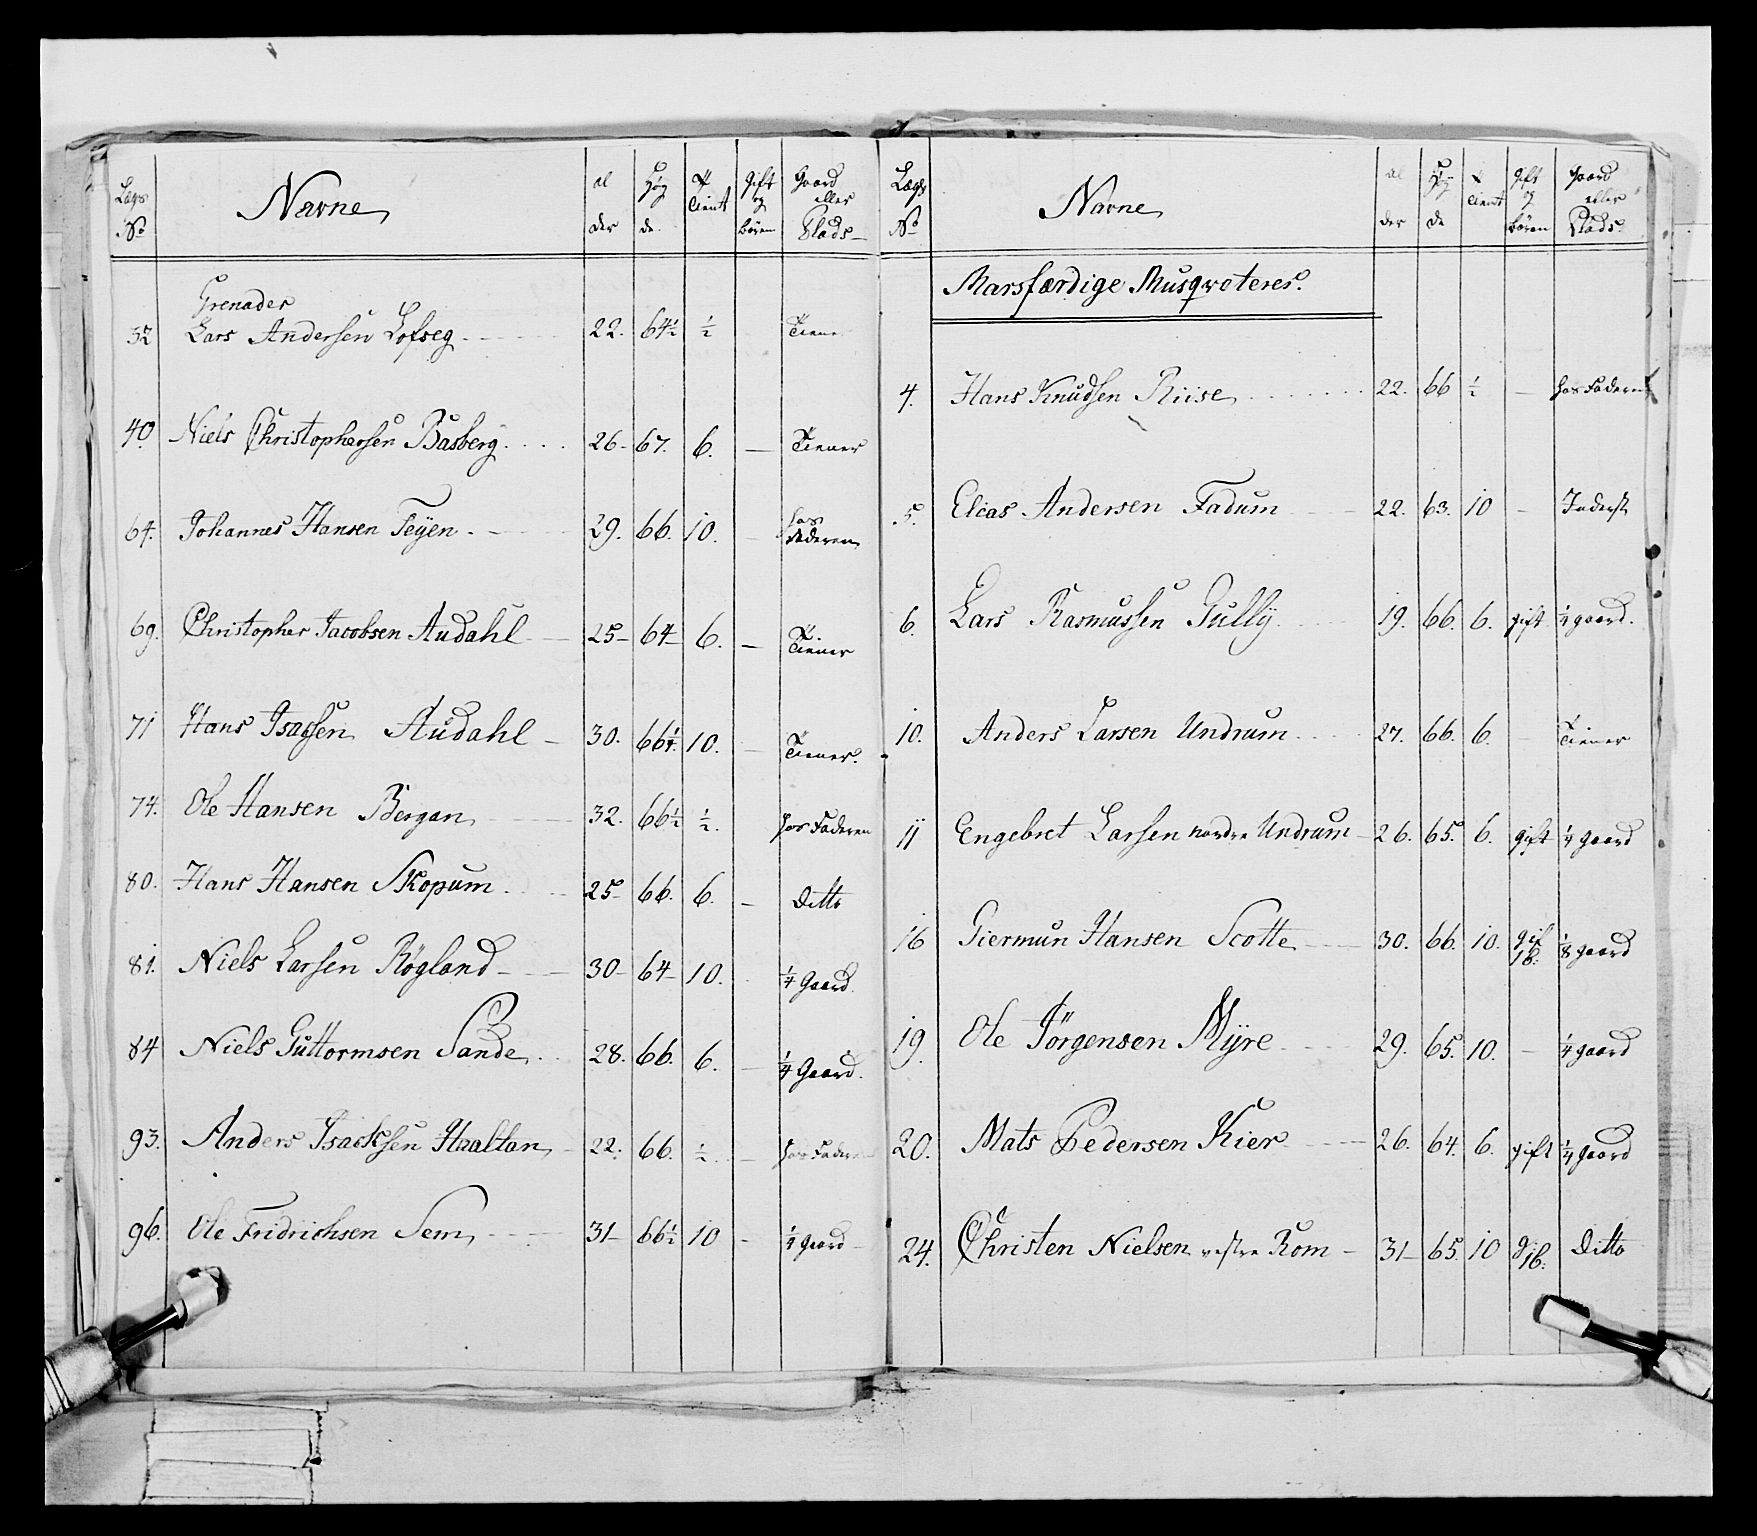 Lægs No | Navne | al der | Høy de | Tient | Gift og børen | Gaard eller Plads
Grenader
32 Lars Andersen Lofseg 22. 64½ ½ Tiene
40 Niels Christophersen Basberg 26 - 67. 6. — Tiener
64. Johannes Hansen Teÿen 29. 66. 10. — hos Faderen
69. Christopher Jacobsen Audahl 25 - 64 - 6. — Tiener
71 Hans Isacsen Audahl 30. 66¼ 10. — Tiener.
74. Ole Hansen Bergan 32. 66½ ½. hos Faderen
80. Hans Hansen Skopum 25 - 66. 6. — Ditto
81. Niels Larsen Røgland 30 - 64 - 10. ¼ Gaard.
84 Niels Guttormsen Sande 28. 66. 6. — ¼ Gaard.
93. Anders Isacksen Haaltan 22. 66. ½ — hos Faderen
96. Ole Fridrichsen Sem 31 - 66½ 10 - ¼ gaard
Lægs No | Navne | al der | Høy de | Tient | Gift og børen | Gaard eller Plads
Marsfærdige Musqveterer.
4. Hans Knudsen Riise 22. 66 ½ — hos Faderen
5. Elias Andersen Fadum 22. 63. 10 — Inderst
6. Lars Rasmussen Gullÿ 19. 66. 6. gift ¼ gaard.
10. Anders Larsen Undrum 27. 66. 6. — Tiener
11 Engebret Larsen nordre Undrum 26. 65. 6. gift ¼ gaard
16 Giermun Hansen Scotte 30. 66. 10. gif 1b: ⅛ gaard
19. Ole Jörgensen Mÿre 29. 65. 10. — ¼ gaard
20. Mats Pedersen Kier 26. 64. 6. gift ¼ gaard
24. Christen Nielsen vestre Rom 31 - 65. 10 g 1b: Ditto